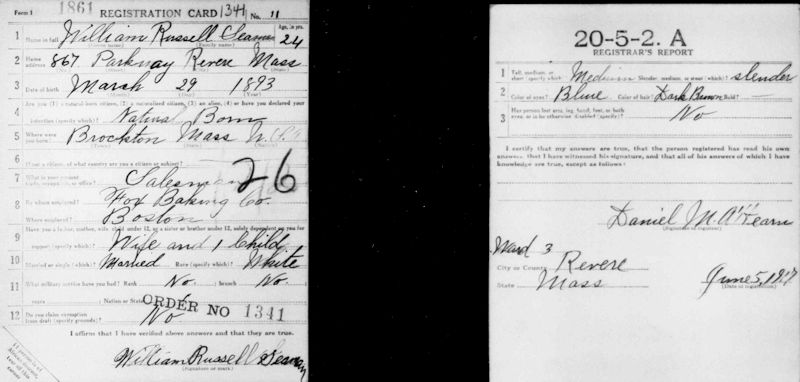 Form 1 1861 REGISTRATION CARD 1341 No. 11
1 Name in full William Russell Seaman Age, in yrs. 24
(Given name) (Family name)
2 Home address 867 Parkway Revere Mass
(No.) (Street) (City) (State)
3 Date of birth Marsh 29 1893
(Month) (Day) (Year)
4 Are you (1) a natural-born citizen, (2) a naturalized citizen, (3) an alien, (4) or have you declared your
intention (specify which)? Natural Born
5 Where were you born? Brockton Mass U.S.A
(Town) (State) (Nation)
6 If not a citizen, of what country are you a citizen or subject?
7 What is your present trade, occupation, or office? Salesman 26
8 By whom employed? Fox Baking Co.
Where employed? Boston
9 Have you a father, mother, wife, child under 12, or a sister or brother under 12, solely dependent on you for
support (specify which)? Wife and 1 Child
10 Married or single (which)? Married Race (specify which)? White
11 What military service have you had? Rank No. ; branch No.
years ; Nation or State
ORDER NO 1341
12 Do you claim exemption from draft (specify grounds)? No
I affirm that I have verified above answers and that they are true.
William Russell Seaman
(Signature or mark)
20-5-2. A
REGISTRAR'S REPORT
1 Tall, medium, or short (specify which)? Medium Slender, medium, or stout (which)? slender
2 Color of eyes? Blue Color of hair? Dark Brown Bald? —
3 Has person lost arm, leg, hand, foot, or both eyes, or is he otherwise disabled (specify)? No
I certify that my answers are true, that the person registered has read his own
answers, that I have witnessed his signature, and that all of his answers of which I have
knowledge are true, except as follows:
Daniel M. A'Hearn
(Signature of registrar)
Ward 3
City or County Revere
State Mass June 5, 1917
(Date of registration)